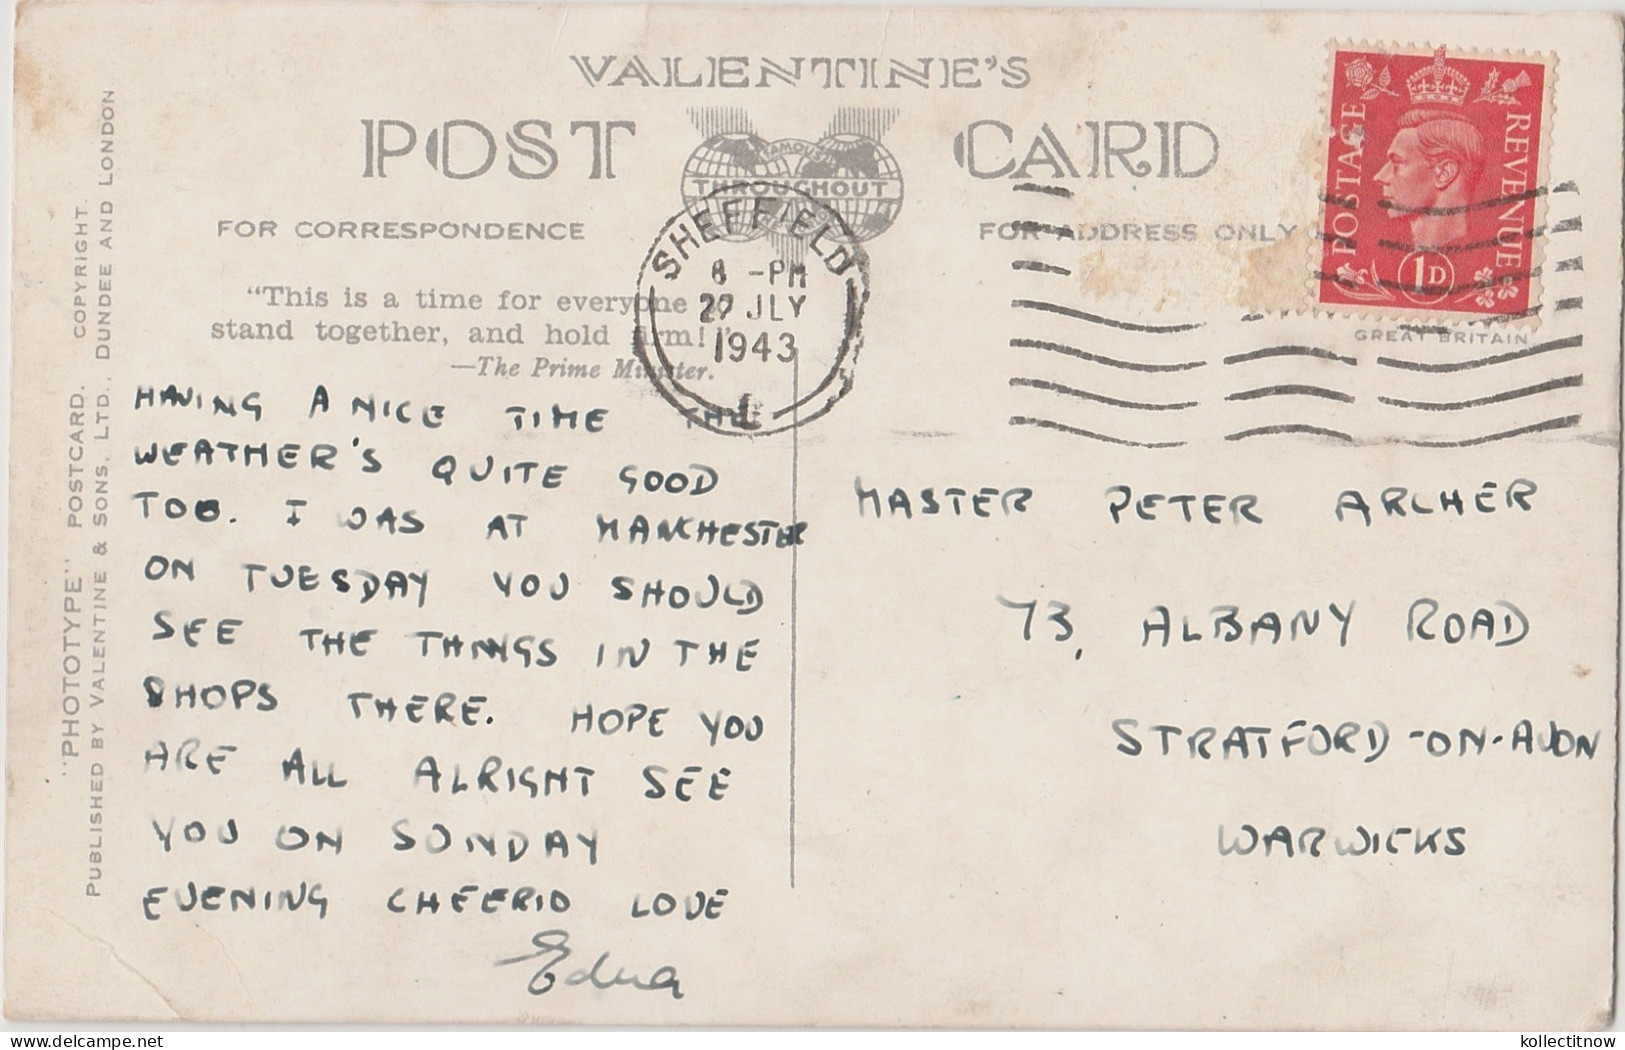 VALENTINE'S
POST CARD
FAMOUS
THROUGHOUT
FOR CORRESPONDENCE
FOR ADDRESS ONLY
"This is a time for everyone to
stand together, and hold firm!"
—The Prime Minister.
SHEFFIELD
8 -PM
JLY
1943
1
POSTAGE
REVENUE
1D
GREAT BRITAIN
HAVING A NICE TIME THE
WEATHER'S QUITE GOOD
TOO. I WAS AT MANCHESTER
ON TUESDAY YOU SHOULD
SEE THE THINGS IN THE
SHOPS THERE. HOPE YOU
ARE ALL ALRIGHT SEE
YOU ON SUNDAY
EVENING CHEERIO LOVE
Edna
MASTER PETER ARCHER
73, ALBANY ROAD
STRATFORD-ON-AVON
WARWICKS
"PHOTOTYPE" POSTCARD. COPYRIGHT.
PUBLISHED BY VALENTINE & SONS, LTD., DUNDEE AND LONDON
kollectitnow